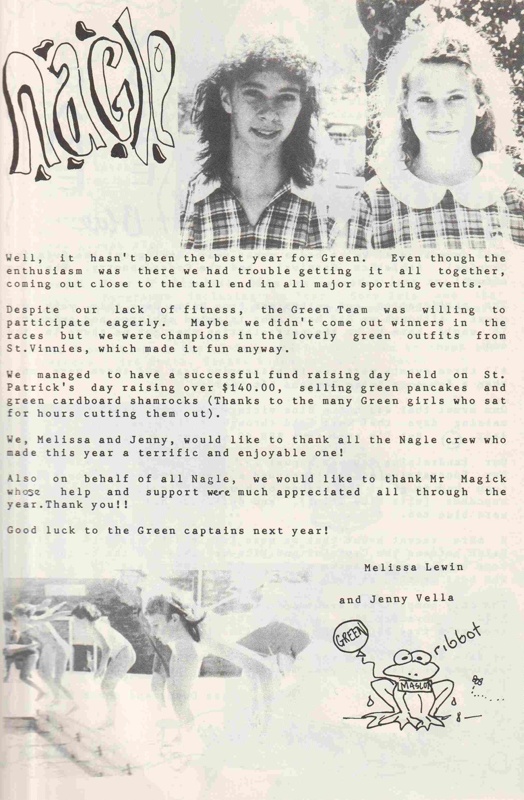 nagle
Well, it hasn't been the best year for Green. Even though the
enthusiasm was there we had trouble getting it all together,
coming out close to the tail end in all major sporting events.
Despite our lack of fitness, the Green Team was willing to
participate eagerly. Maybe we didn't come out winners in the
races but we were champions in the lovely green outfits from
St.Vinnies, which made it fun anyway.
We managed to have a successful fund raising day held on St.
Patrick's day raising over $140.00, selling green pancakes and
green cardboard shamrocks (Thanks to the many Green girls who sat
for hours cutting them out).
We, Melissa and Jenny, would like to thank all the Nagle crew who
made this year a terrific and enjoyable one!
Also on behalf of all Nagle, we would like to thank Mr Magick
whose help and support were much appreciated all through the
year.Thank you!!
Good luck to the Green captains next year!
Melissa Lewin
and Jenny Vella
GREEN
ribbot
MASCOT